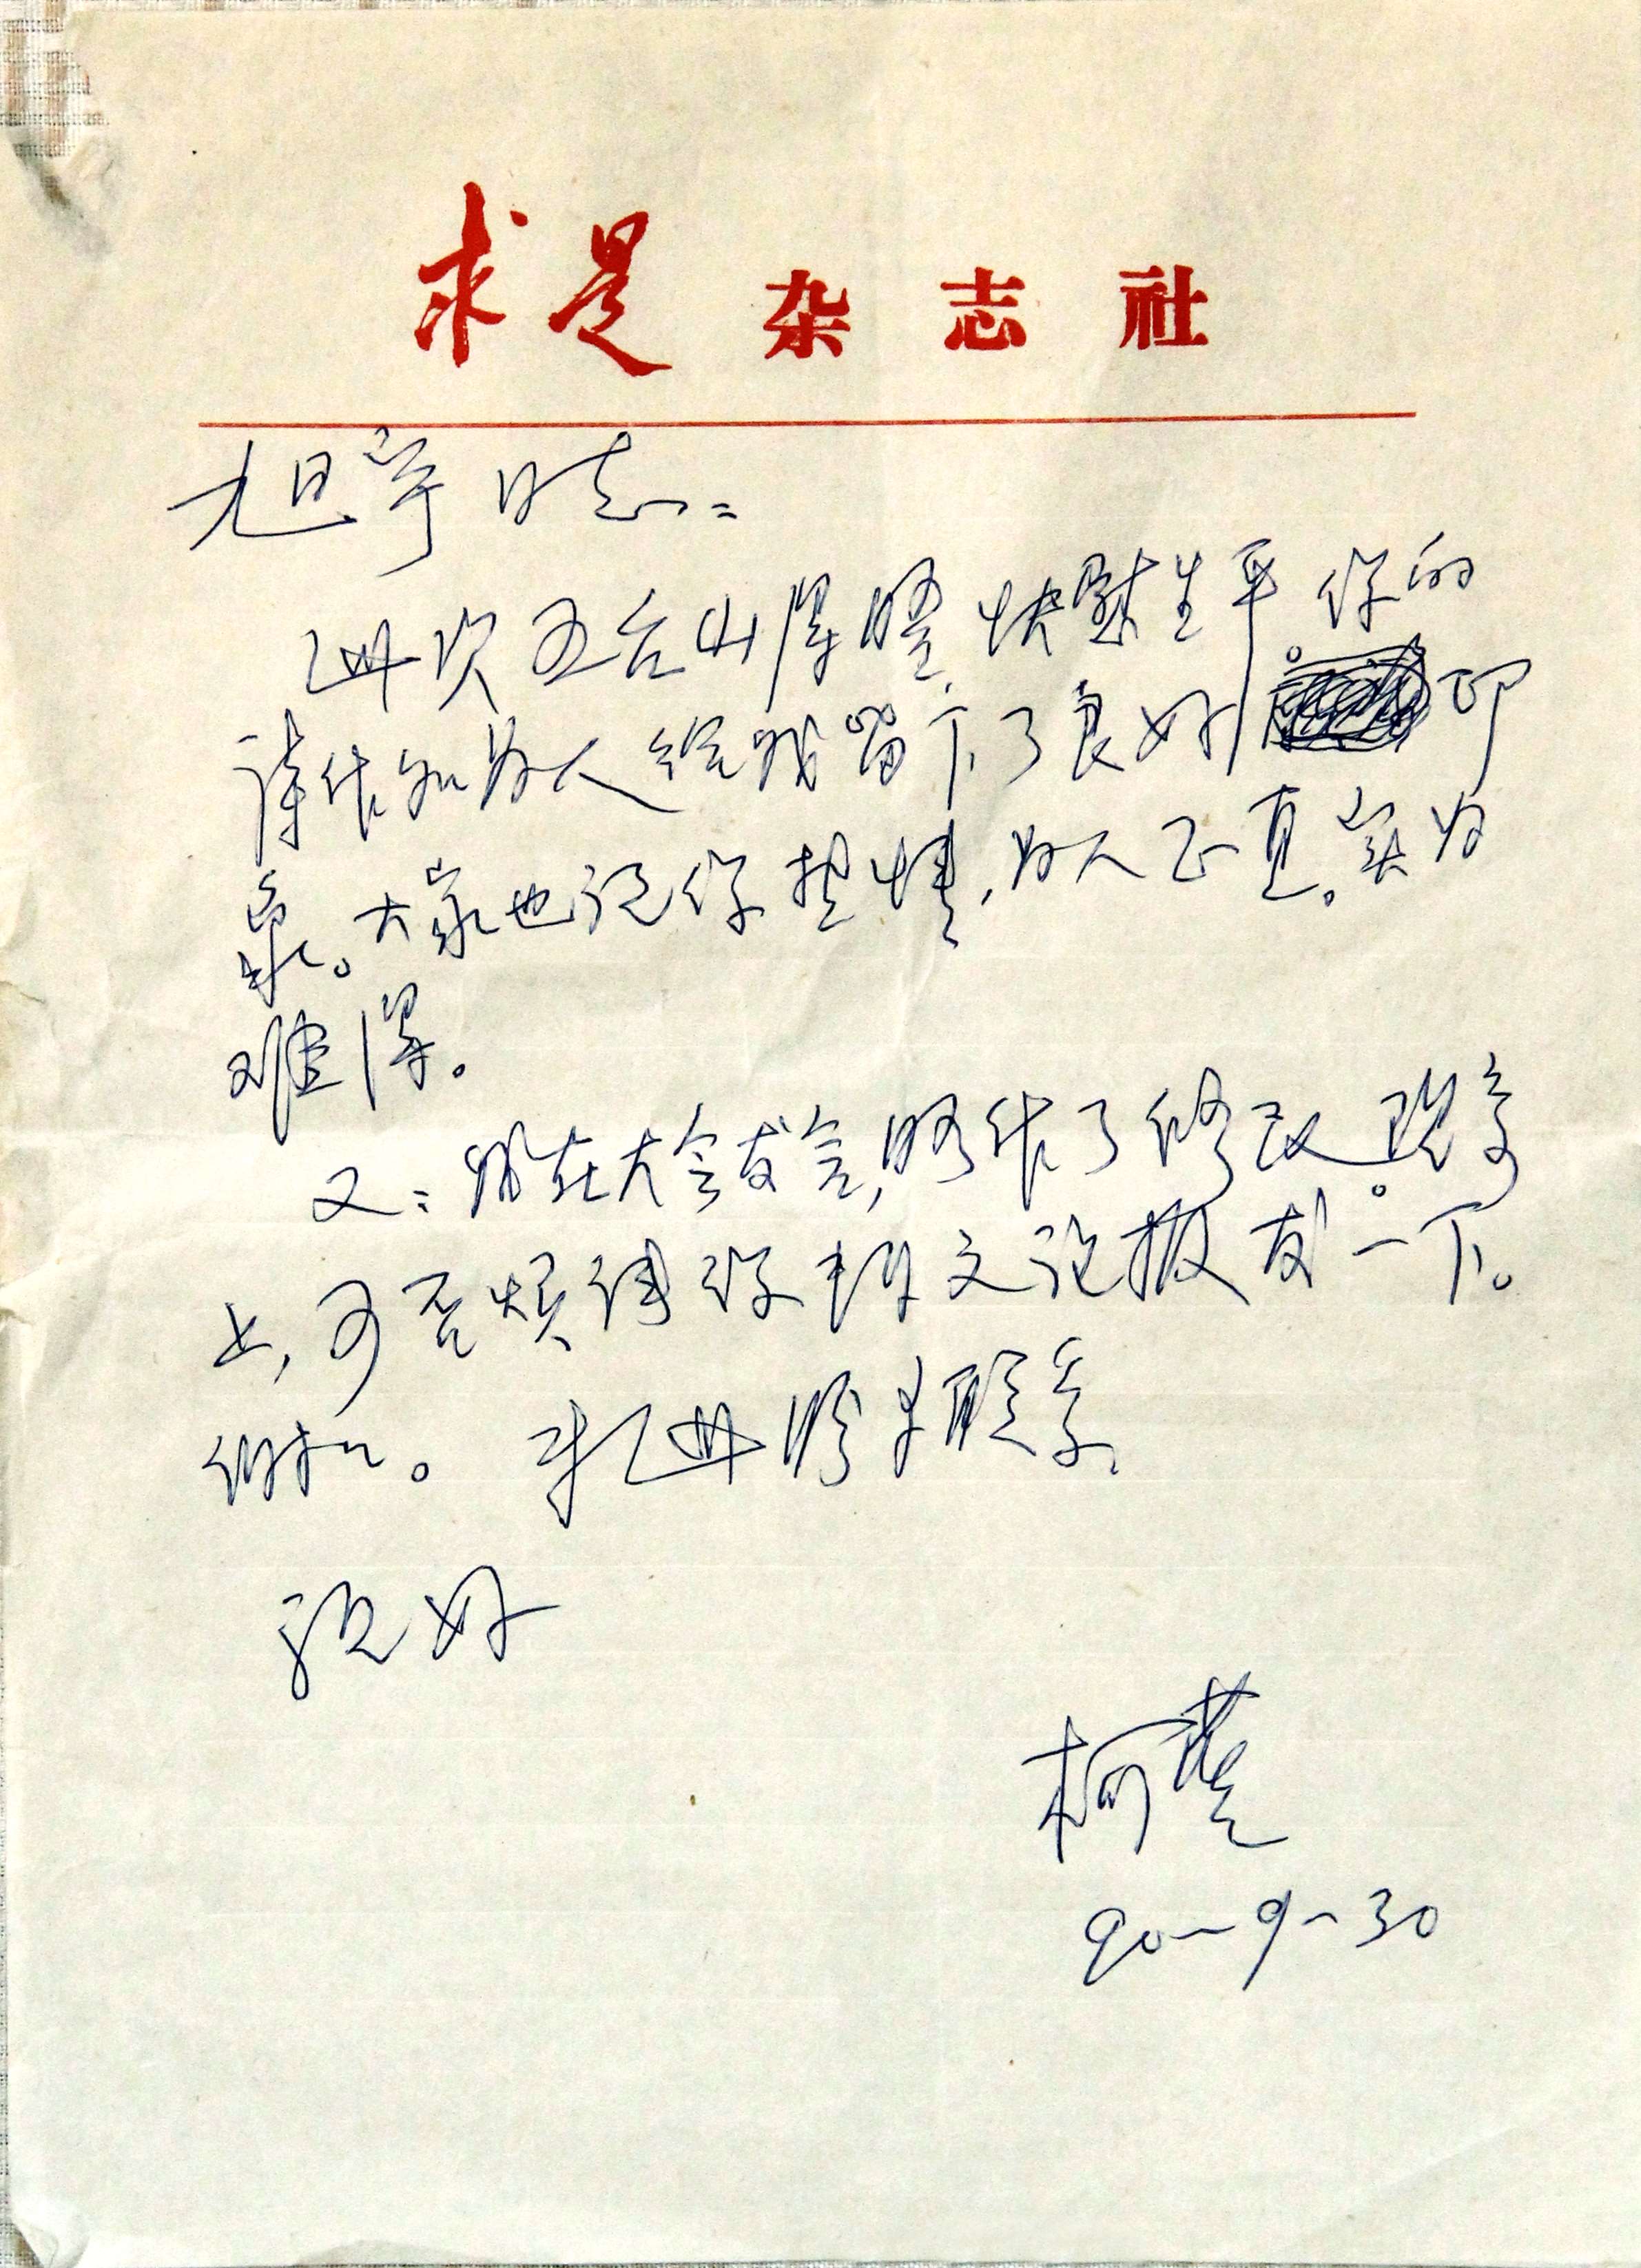 求是杂志社
旭宇同志：
这次五台山得晤，快慰生平。你的
诗作和为人给我留下了良好印
象。大家也说你热情，为人正直。实为
难得。
又：我在大会发言，略作了修改。现寄
上，可否烦请你转文论报发一下。
谢谢。我这盼多联系。
致好
柯蓝
90-9-30